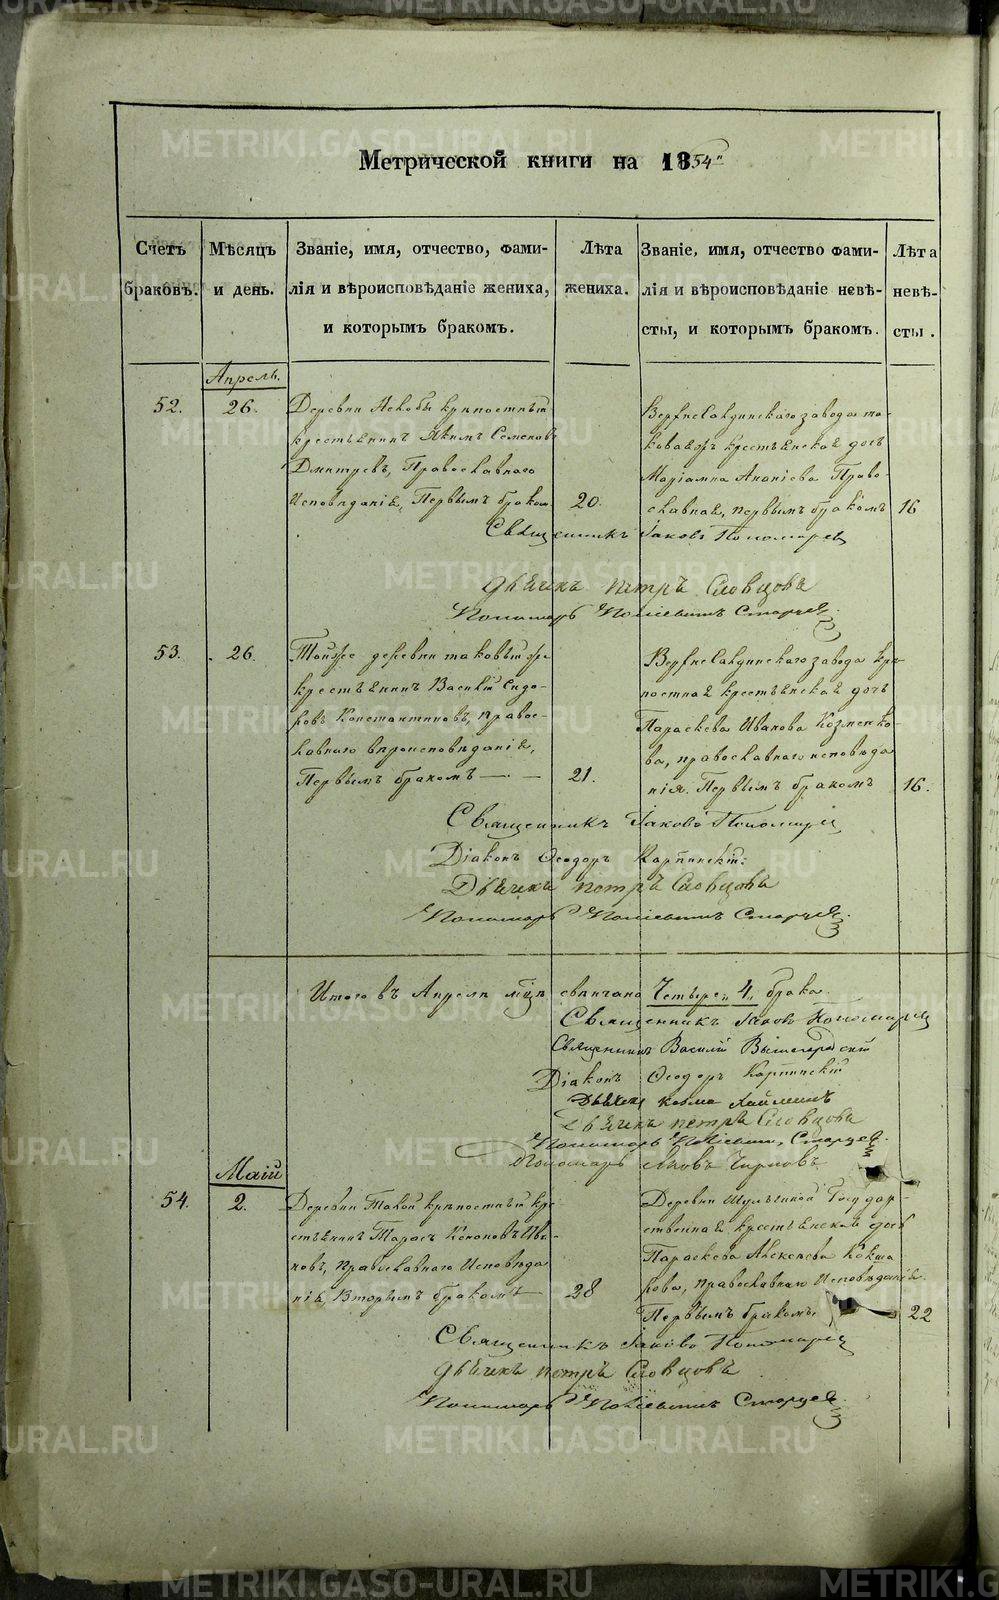 METRIKI.GASO-URAL.RU
Метрической книги на 1854
Счетъ браковъ.
Мѣсяцъ и день.
Званіе, имя, отчество, фами-
лія и вѣроисповѣданіе жениха,
и которымъ бракомъ.
Лѣта жениха.
Званіе, имя, отчество фами-
лія и вѣроисповѣданіе невѣ-
сты, и которымъ бракомъ.
Лѣта невѣ-
сты.
Апрель.
52.
26.
Деревни крѣпостный
крестьянинъ Якимъ Семеновъ
Дмитревъ, Православнаго
Исповѣданія, Первымъ бракомъ
20.
Верхнесалдинскаго завода та-
коваяжъ крестьянская дочь
Маріамна Ананіева Право-
славная, первымъ бракомъ
16
Священникъ Іаковъ Пономаревъ
Дьячекъ Петръ Словцовъ
Пономарь Старцевъ
53.
26.
Тойже деревни таковый же
крестьянинъ Василій Сидо-
ровъ Константиновъ, право-
славнаго вѣроисповѣданія,
Первымъ бракомъ
21.
Верхнесалдинскаго завода крѣ-
постная крестьянская дочь
Параскева Иванова Козменко-
ва, православнаго исповѣда
нія. Первымъ бракомъ
16.
Священникъ Іаковъ Пономаревъ
Діаконъ Ѳеодоръ Карпинскій
Дьячекъ Петръ Словцовъ
Пономарь Старцевъ
Итого въ Апрелѣ мцѣ свѣнчано Четыре „4„ брака.
Священникъ Іаковъ Пономаревъ
Священникъ Василій
Діаконъ Ѳеодоръ Карпинскій
Дьячекъ Козма
Дьячекъ Петръ Словцовъ
Пономарь Старцевъ.
Пономарь Яковъ
Маій
54.
2.
Деревни крѣпостный кре
стьянинъ Тарасъ Ива-
новъ, Православнаго Исповѣда
нія, Вторымъ бракомъ
28
Деревни Шулѣгиной Государ-
ственная крестьянская дочь
Параскева Алексеева Кокша
рова, православнаго Исповѣданія.
Первымъ бракомъ
22
Священникъ Іаковъ Пономаревъ
Дьячекъ Петръ Словцовъ
Пономарь Старцевъ